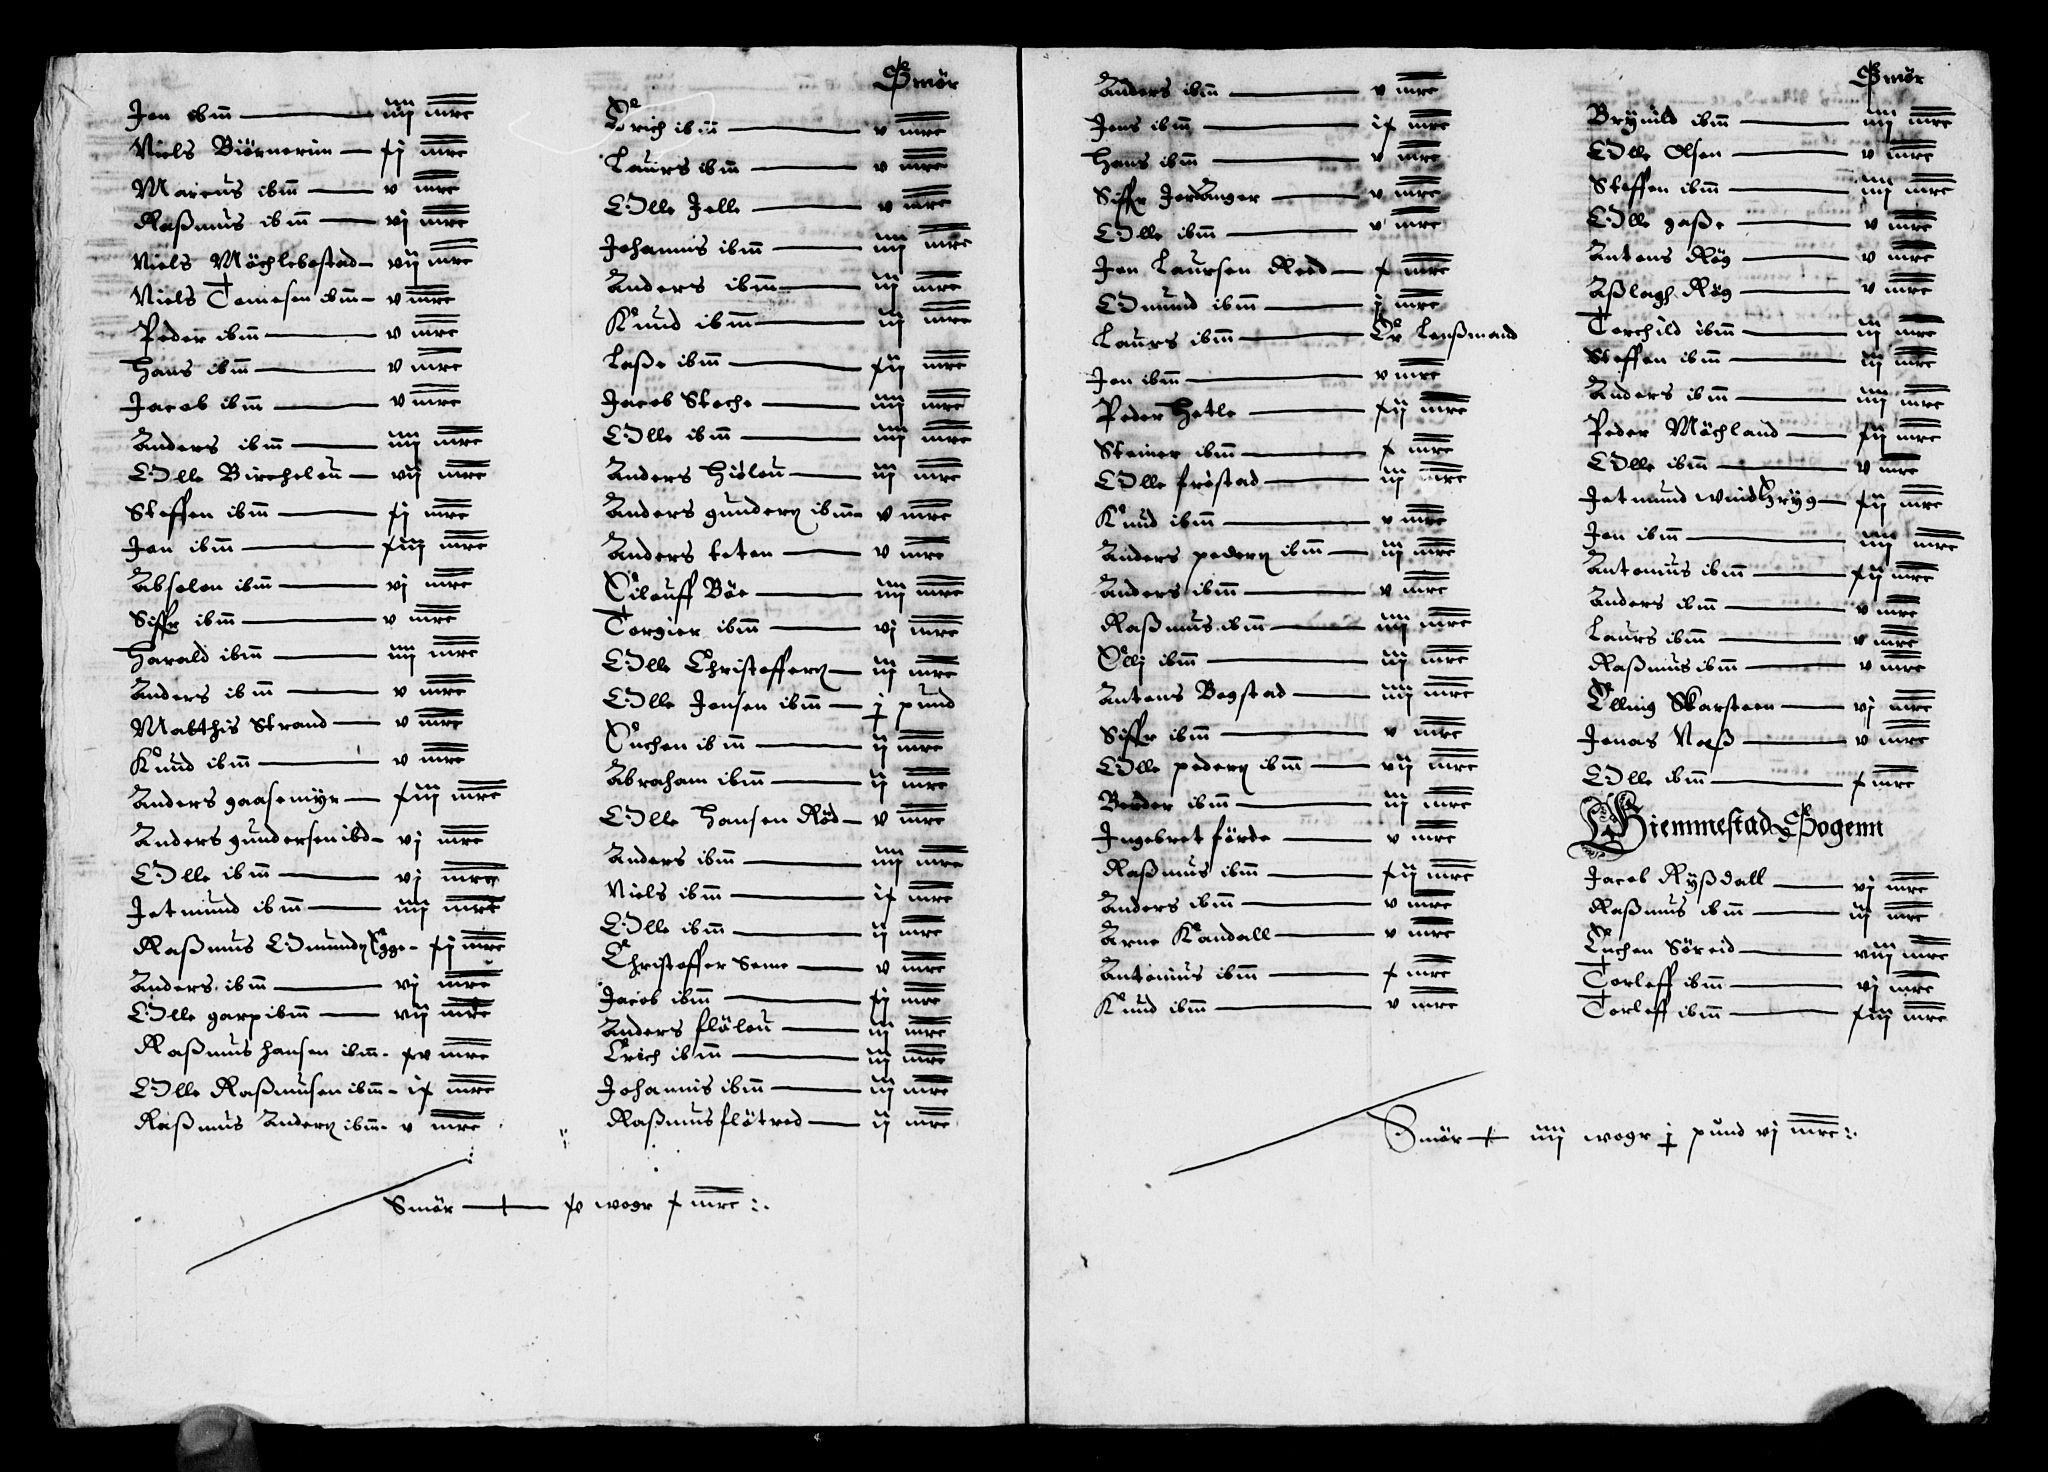 Jon ibm̄ — iiij mrc
Niels Biörnerim — xj mrc
Marcus ibm̄ — v mrc
Raßmus ibm̄ — vj mrc
Niels Möchlebostad — vij mrc
Niels Tomesen ibm̄ — v mrc
Peder ibm̄ — v mrc
Hans ibm̄ — v mrc
Jacob ibm̄ — v mrc
Anders ibm̄ — iiij mrc
Olle Birchelou — vij mrc
Steffen ibm̄ — xj mrc
Jon ibm̄ — xiij mrc
Abselon ibm̄ — vj mrc
Siffr ibm̄ — v mrc
Harald ibm̄ — iiij mrc
Anders ibm̄ — v mrc
Matthis Strand — v mrc
Knud ibm̄ — v mrc
Anders gaasemyr — xiij mrc
Anders gundersen ibd — vj mrc
Olle ibm̄ — vj mrc
Jetmund ibm̄ — iiij mrc
Raßmus Omunds Egge — xj mrc
Anders ibm̄ — vj mrc
Olle garp ibm̄ — vij mrc
Raßmus hansen ibm̄ — xv mrc
Olle Raßmusen ibm̄ — ix mrc
Raßmus Anders ibm̄ — v mrc
Smör
Erich ibm̄ — v mrc
Laurs ibm̄ — v mrc
Olle Jelle — v mrc
Johannis ibm̄ — iiij mrc
Anders ibm̄ — iij mrc
Knud ibm̄ — iij mrc
Laße ibm̄ — xij mrc
Jacob Stoche — iiij mrc
Olle ibm̄ — iiij mrc
Anders Hiölou — iij mrc
Anders gunders ibm̄ — v mrc
Anders toten — v mrc
Eilouff Böe — iiij mrc
Torgier ibm̄ — vj mrc
Olle Christoffers — iij mrc
Olle Jensen ibm̄ — j pund
Ouchen ibm̄ — ij mrc
Abraham ibm̄ — ij mrc
Olle Hansen Röd — v mrc
Anders ibm̄ — iiij mrc
Niels ibm̄ — ix mrc
Olle ibm̄ — ij mrc
Christoffer Seme — v mrc
Jacob ibm̄ — xj mrc
Anders flölou — iij mrc
Erich ibm̄ — iij mrc
Johannis ibm̄ — iij mrc
Raßmus flötred — ij mrc
Smör — xv wogr x mrc
Anders ibm̄ — v mrc
Jens ibm̄ — ix mrc
Hans ibm̄ — v mrc
Siffr Jordanger — v mrc
Olle ibm̄ — v mrc
Jon Laursen Reed — x mrc
Omund ibm̄ — j mrc
Laurs ibm̄ — Er Lenßmand
Jon ibm̄ — v mrc
Peder Hetle — xij mrc
Steiner ibm̄ — x mrc
Olle fröstad — iij mrc
Knud ibm̄ — v mrc
Anders peders ibm̄ — iij mrc
Anders ibm̄ — v mrc
Raßmus ibm̄ — iiij mrc
Elli ibm̄ — iij mrc
Antons Bogstad — iiij mrc
Siffr ibm̄ — v mrc
Olle peders ibm̄ — vij mrc
Border ibm̄ — iij mrc
Ingebret förde — v mrc
Raßmus ibm̄ — xij mrc
Anders ibm̄ — v mrc
Arne Kandall — v mrc
Antonius ibm̄ — x mrc
Knud ibm̄ — v mrc
Smör
Brynild ibm̄ — iiij mrc
Olle Olsen — v mrc
Steffen ibm̄ — iiij mrc
Olle gaße — v mrc
Antons Røg — v mrc
Aßlagh Røg — v mrc
Torchild ibm̄ — iij mrc
Steffen ibm̄ — iij mrc
Anders ibm̄ — iiij mrc
Peder Möchland — xij mrc
Olle ibm̄ — v mrc
Jetmund Windhryg — xij mrc
Jon ibm̄ — iiij mrc
Antonius ibm̄ — xij mrc
Anders ibm̄ — v mrc
Laurs ibm̄ — v mrc
Raßmus ibm̄ — v mrc
Elling Skarsteen — vj mrc
Jonas Naeß — v mrc
Olle ibm̄ — x mrc
Hiemmestad Sogenn
Jacob Ryßdall — vj mrc
Raßmus ibm̄ — iij mrc
Euchen Söreid — viij mrc
Torleff ibm̄ — vj mrc
Torleff ibm̄ — xiij mrc
Smör — iiij wogr j pund vj mrc